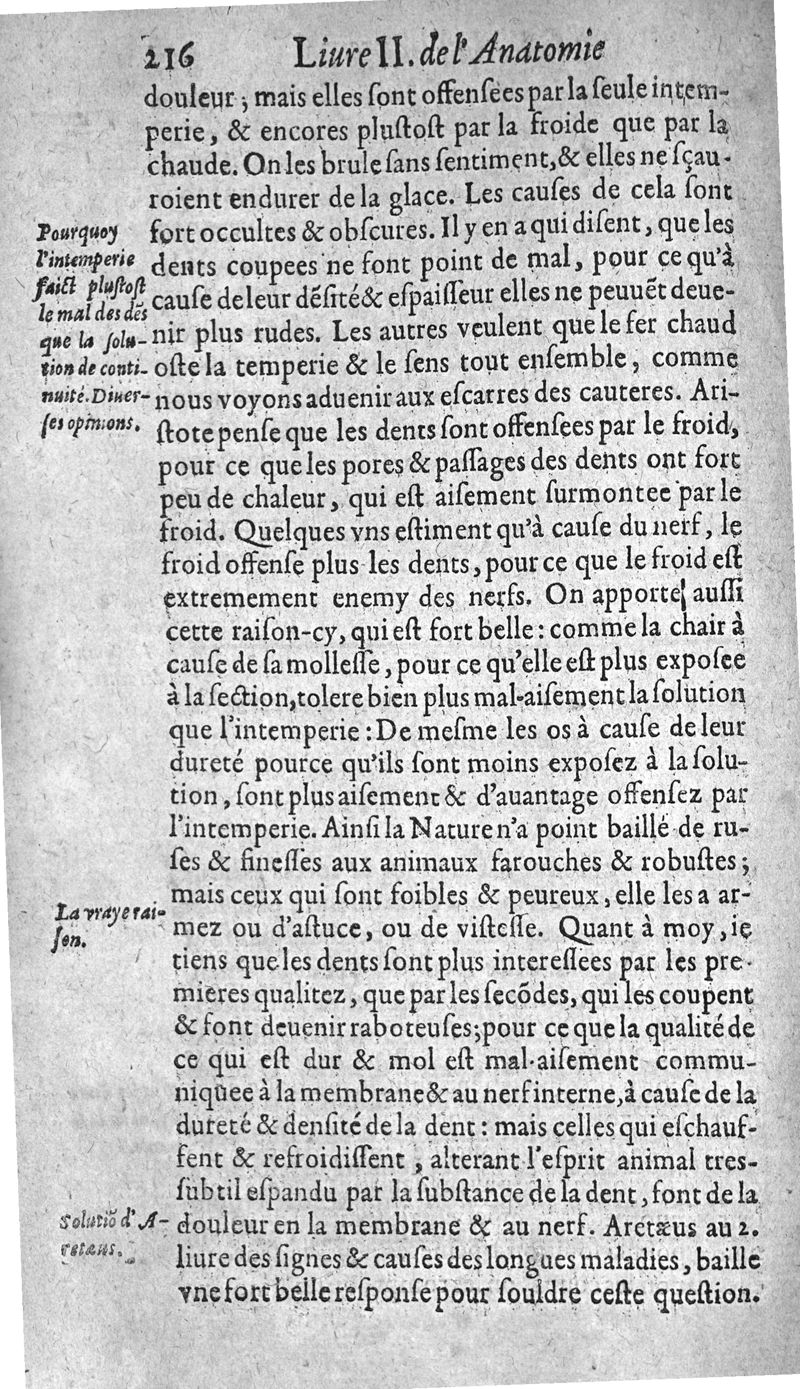 216 Liure II. de l'Anatomie
douleur ; mais elles ſont offenſées par la ſeule intem-
perie, & encores pluſtoſt par la froide que par la
chaude. On les brule ſans ſentiment, & elles ne ſçau-
roient endurer de la glace. Les cauſes de cela ſont
fort occultes & obſcures. Il y en a qui diſent, que les
dents coupees ne font point de mal, pour ce qu'à
cauſe de leur dẽſité & eſpaiſſeur elles ne peuuẽt deue-
nir plus rudes. Les autres veulent que le fer chaud
oſte la temperie & le ſens tout enſemble, comme
nous voyons aduenir aux eſcarres des cauteres. Ari-
ſtote penſe que les dents ſont offenſees par le froid,
pour ce que les pores & paſſages des dents ont fort
peu de chaleur, qui eſt aiſement ſurmontee par le
froid. Quelques vns eſtiment qu'à cauſe du nerf, le
froid offenſe plus les dents, pour ce que le froid eſt
extremement enemy des nerfs. On apporte auſſi
cette raiſon-cy, qui eſt fort belle : comme la chair à
cauſe de ſa molleſſe, pour ce qu'elle eſt plus expoſee
à la ſection, tolere bien plus mal-aiſement la ſolution
que l'intemperie : De meſme les os à cauſe de leur
dureté pource qu'ils ſont moins expoſez à la ſolu-
tion, ſont plus aiſement & d'auantage offenſez par
l'intemperie. Ainſi la Nature n'a point baillé de ru-
ſes & fineſſes aux animaux farouches & robuſtes ;
mais ceux qui ſont foibles & peureux, elle les a ar-
mez ou d'aſtuce, ou de viſteſſe. Quant à moy, ie
tiens que les dents ſont plus intereſſees par les pre-
mieres qualitez, que par les ſecõdes, qui les coupent
& font deuenir raboteuſes ; pour ce que la qualité de
ce qui eſt dur & mol eſt mal-aiſement commu-
niquee à la membrane & au nerf interne, à cauſe de la
dureté & denſité de la dent : mais celles qui eſchauf-
fent & refroidiſſent, alterant l'eſprit animal tres-
ſubtil eſpandu par la ſubſtance de la dent, font de la
douleur en la membrane & au nerf. Aretæus au 2.
liure des ſignes & cauſes des longues maladies, baille
vne fort belle reſponſe pour ſouldre ceſte queſtion.
Pourquoy
l'intemperie
faict pluſtoſt
le mal des dẽs
que la ſolu-
tion de conti-
nuité. Diuer-
ſes opinions.
La vraye rai-
ſon.
Solutiõ d'A-
retæus.